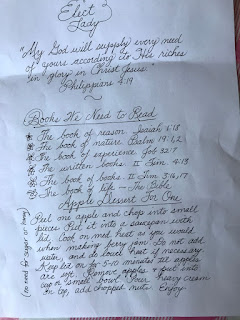 Elect
Lady
"My God will supply every need
of yours according to His riches
in glory in Christ Jesus.
Philippians 4:19
Books We Need to Read
The book of reason Isaiah 1:18
The book of nature Psalm 19:1,2
The book of experience Job 32:7
The written books II Tim 4:13
The book of books II Tim 3:16,17
The book of life - The Bible
Apple Dessert For One
Peel one apple and chop into small
pieces. Put it into a saucepan with
lid. Cook on med heat as you would
when making berry jam. Do not add
water, and do lower heat if necessary.
Keep lid on for 5-10 minutes til apples
are soft. Remove apples & put into
cup or small bowl. Pour heavy cream
on top, add chopped nuts. Enjoy.
(no need for sugar or honey)